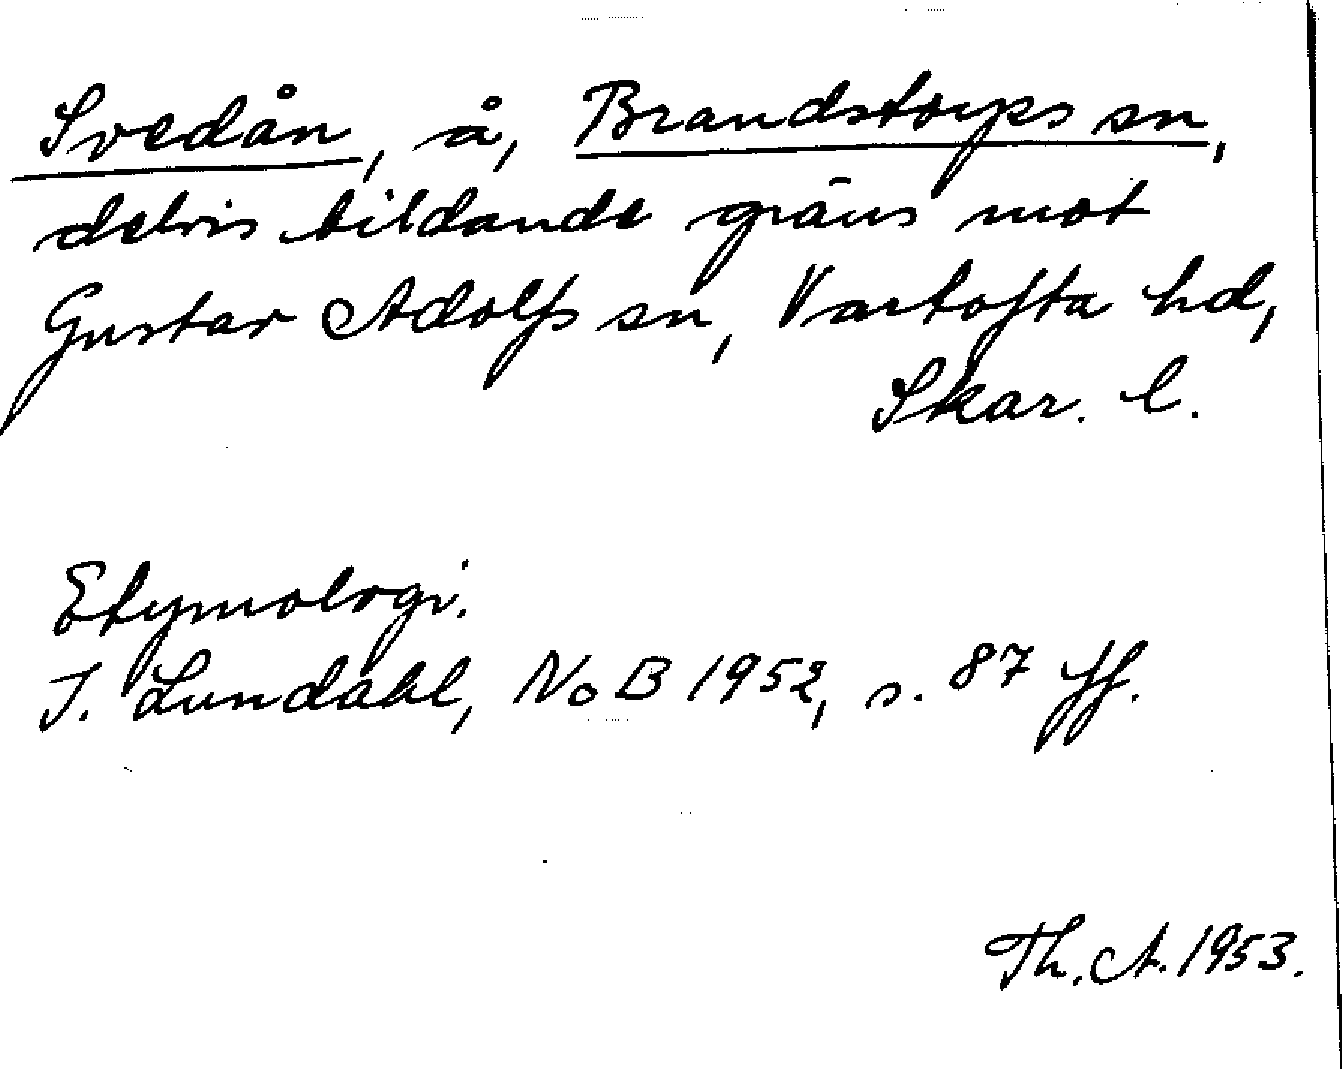 Svedån, å, Brandstorps sn,
delvis bildande gräns mot
Gustav Adolfs sn, Vartofta hd,
Skar. l.
Etymologi.
I. Lundahl, NoB 1952, s. 87 ff.
Th. A. 1953.